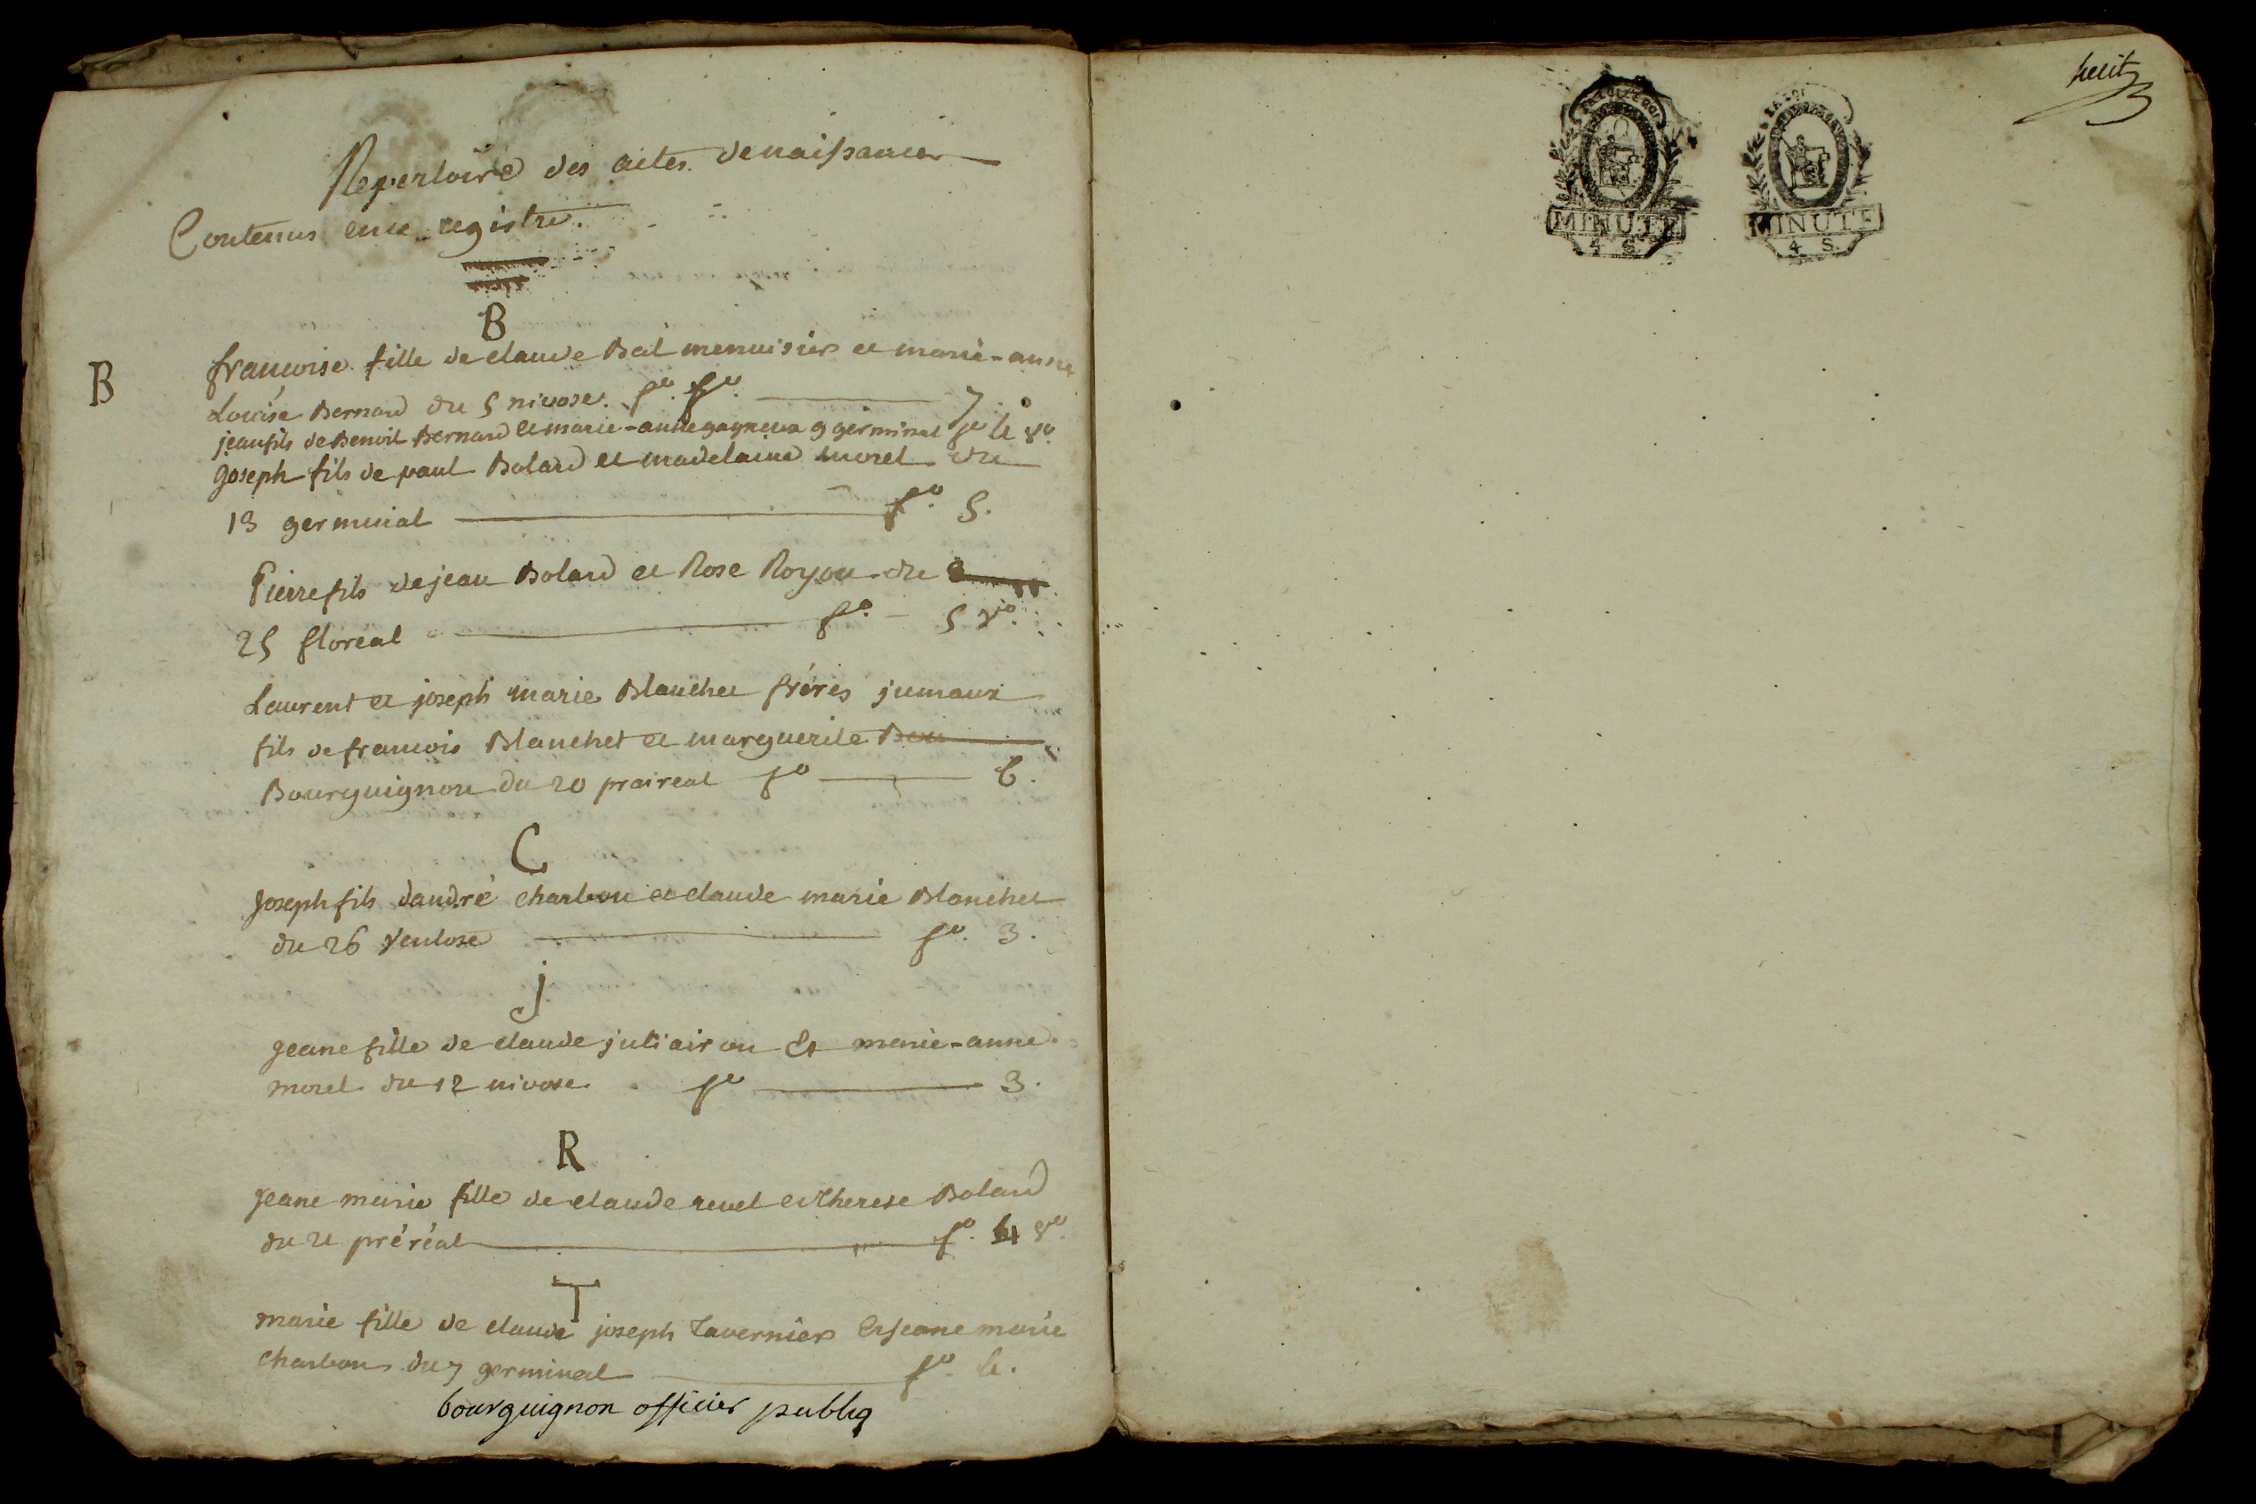 huit
MINUTE
4 S.
MINUTE
4 S.
Repertoire des actes denaissances
Contenus ence registre.
B
B
françoise fille de claude Bal menuisier et marie-anne
Louise Bernard du 5 nivose. fo. fo. 7.
jean fils de Benoit Bernard et marie-anne gagneux 9 germinal fo 4 vo.
Joseph fils de paul Bolard et madelaine morel du
13 germinal fo. 5.
Pierre fils de jean Bolard et Rose Royou du
25 floréal fo. 5 vo.
Laurent et joseph marie Blanchet fréres jumaux
fils de francois Blanchet et marguerite Bou
Bourguignon du 20 praireal fo 6.
C
Joseph fils dandré charbon et claude marie Blanchet
du 26 Ventose fo. 3.
j
jeane fille de claude juliairon et marie-anne
morel du 12 nivose. fo 3.
R
jeane marie fille de claude revel et therese Bolard
du 21 préréal fo. 4 vo.
T
marie fille de claude joseph tavernier et jeane marie
charbon du 7 germinal fo. 4.
bourguignon officier publiq